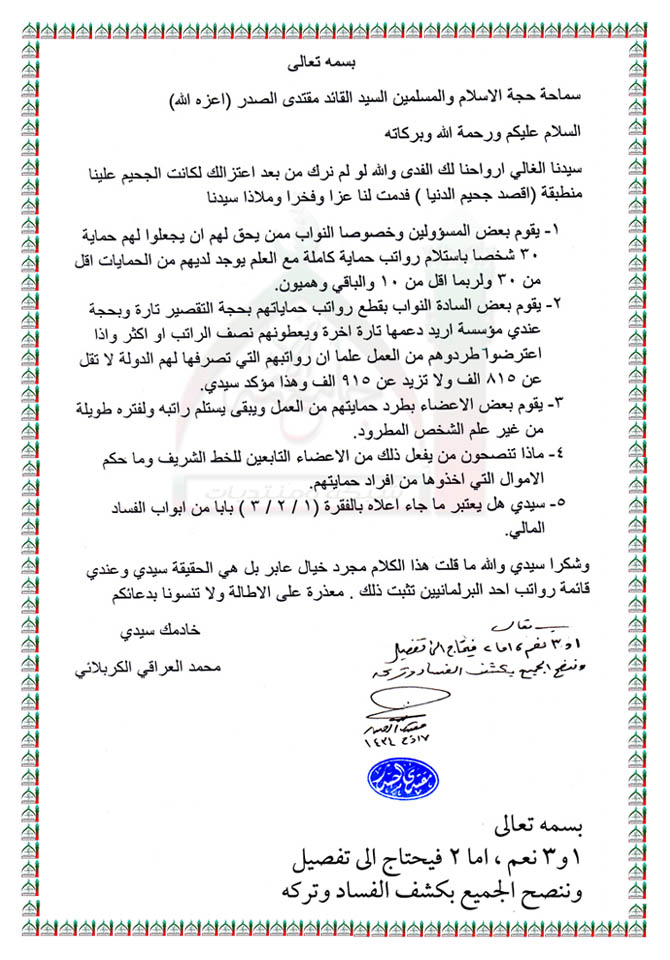 بسمه تعالى
سماحة حجة الاسلام والمسلمين السيد القائد مقتدى الصدر (اعزه الله)
السلام عليكم ورحمة الله وبركاته
سيدنا الغالي ارواحنا لك الفدى والله لو لم نرك من بعد اعتزالك لكانت الجحيم علينا
منطبقة (اقصد جحيم الدنيا ) فدمت لنا عزا وفخرا وملاذا سيدنا
١- يقوم بعض المسؤولين وخصوصا النواب ممن يحق لهم ان يجعلوا لهم حماية
٣٠ شخصا باستلام رواتب حماية كاملة مع العلم يوجد لديهم من الحمايات اقل
من ٣٠ ولربما اقل من ١٠ والباقي وهميون.
٢- يقوم بعض السادة النواب بقطع رواتب حماياتهم بحجة التقصير تارة وبحجة
عندي مؤسسة اريد دعمها تارة اخرة ويعطونهم نصف الراتب او اكثر واذا
اعترضوا طردوهم من العمل علما ان رواتبهم التي تصرفها لهم الدولة لا تقل
عن ٨١٥ الف ولا تزيد عن ٩١٥ الف وهذا مؤكد سيدي.
٣- يقوم بعض الاعضاء بطرد حمايتهم من العمل ويبقى يستلم راتبه ولفتره طويلة
من غير علم الشخص المطرود.
٤- ماذا تنصحون من يفعل ذلك من الاعضاء التابعين للخط الشريف وما حكم
الاموال التي اخذوها من افراد حمايتهم.
٥- سيدي هل يعتبر ما جاء اعلاه بالفقرة (١ / ٢ / ٣ ) بابا من ابواب الفساد
المالي.
وشكرا سيدي والله ما قلت هذا الكلام مجرد خيال عابر بل هي الحقيقة سيدي وعندي
قائمة رواتب احد البرلمانيين تثبت ذلك . معذرة على الاطالة ولا تنسونا بدعائكم
خادمك سيدي
محمد العراقي الكربلائي
بسمه تعالى
١ و ٣ نعم ، اما ٢ فيحتاج الى تفصيل
وننصح الجميع بكشف الفساد وتركه
مقتدى الصدر
١٤٣٤
مقتدى الصدر
بسمه تعالى
١ و ٣ نعم ، اما ٢ فيحتاج الى تفصيل
وننصح الجميع بكشف الفساد وتركه